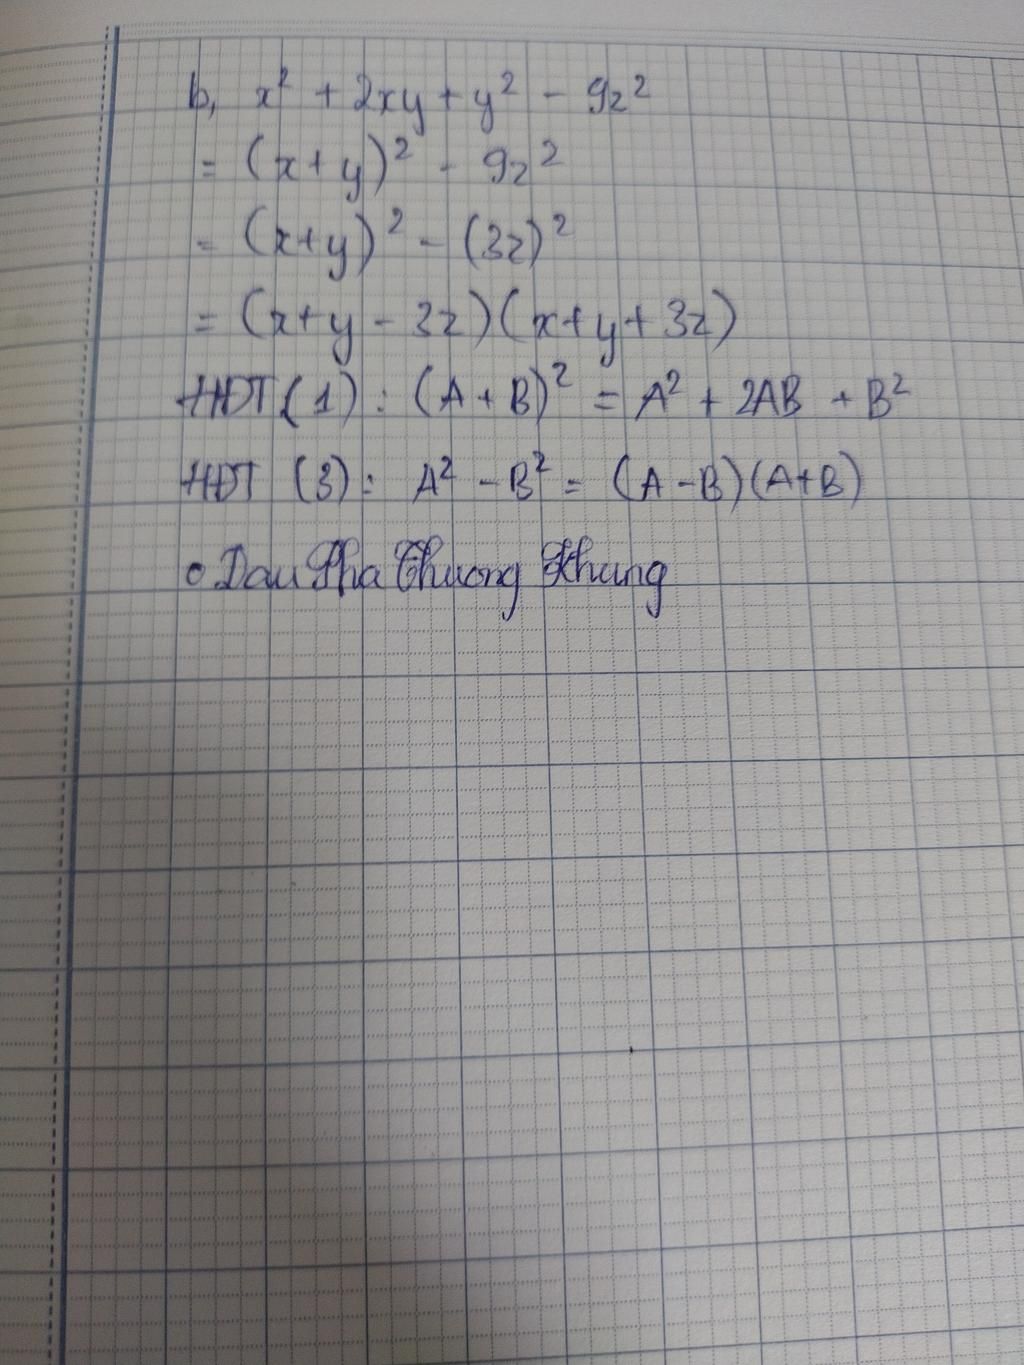 b, x² + 2xy + y² - 9z²
= (x+y)² - 9z²
= (x+y)² - (3z)²
= (x+y - 3z)(x+y+3z)
HĐT (1) : (A + B)² = A² + 2AB + B²
HĐT (3) : A² - B² = (A - B)(A+B)
Dau Pha Thuong Khung